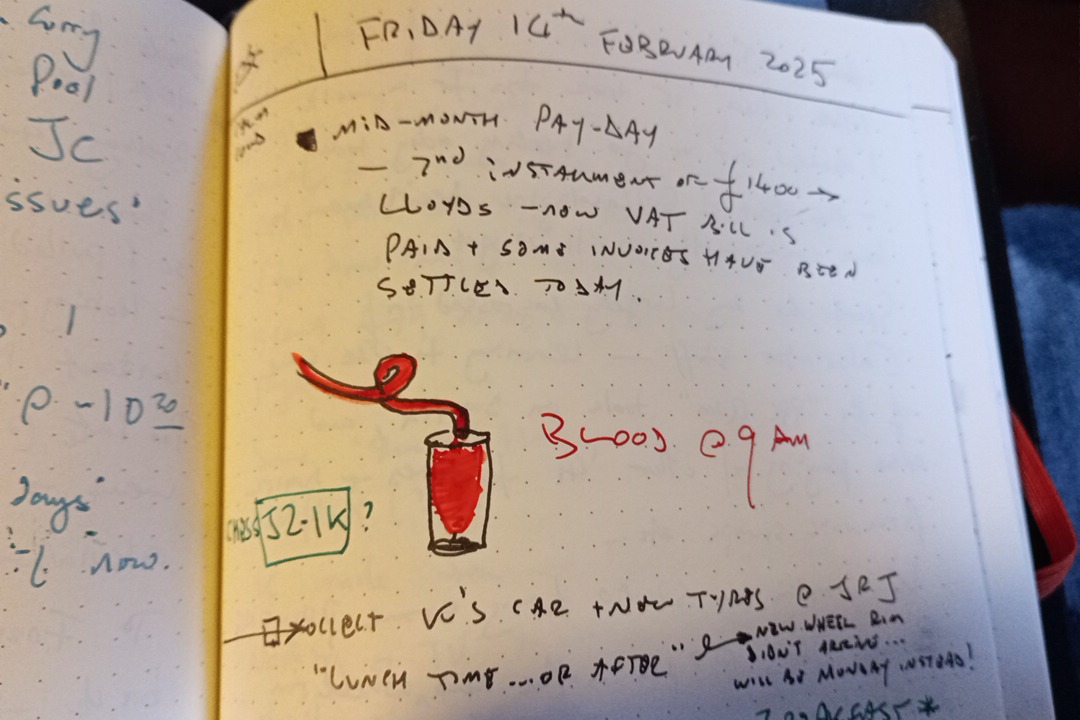 Sorry
Pool
JC
issues'
1
P-1020
days'
now.
FRIDAY 14th FEBRUARY 2025
MID-MONTH PAY-DAY
- 2nd INSTALMENT OF £1400 →
LLOYDS - NOW VAT BILL IS
PAID + SOME INVOICES HAVE BEEN
SETTLED TODAY.
BLOOD @ 9 AM
J2.1K ?
COLLECT VC'S CAR + NEW TYRES @ JRJ
"LUNCH TIME... OR AFTER"
NEW WHEEL RIM
DIDN'T ARRIVE...
WILL BE MONDAY INSTEAD!